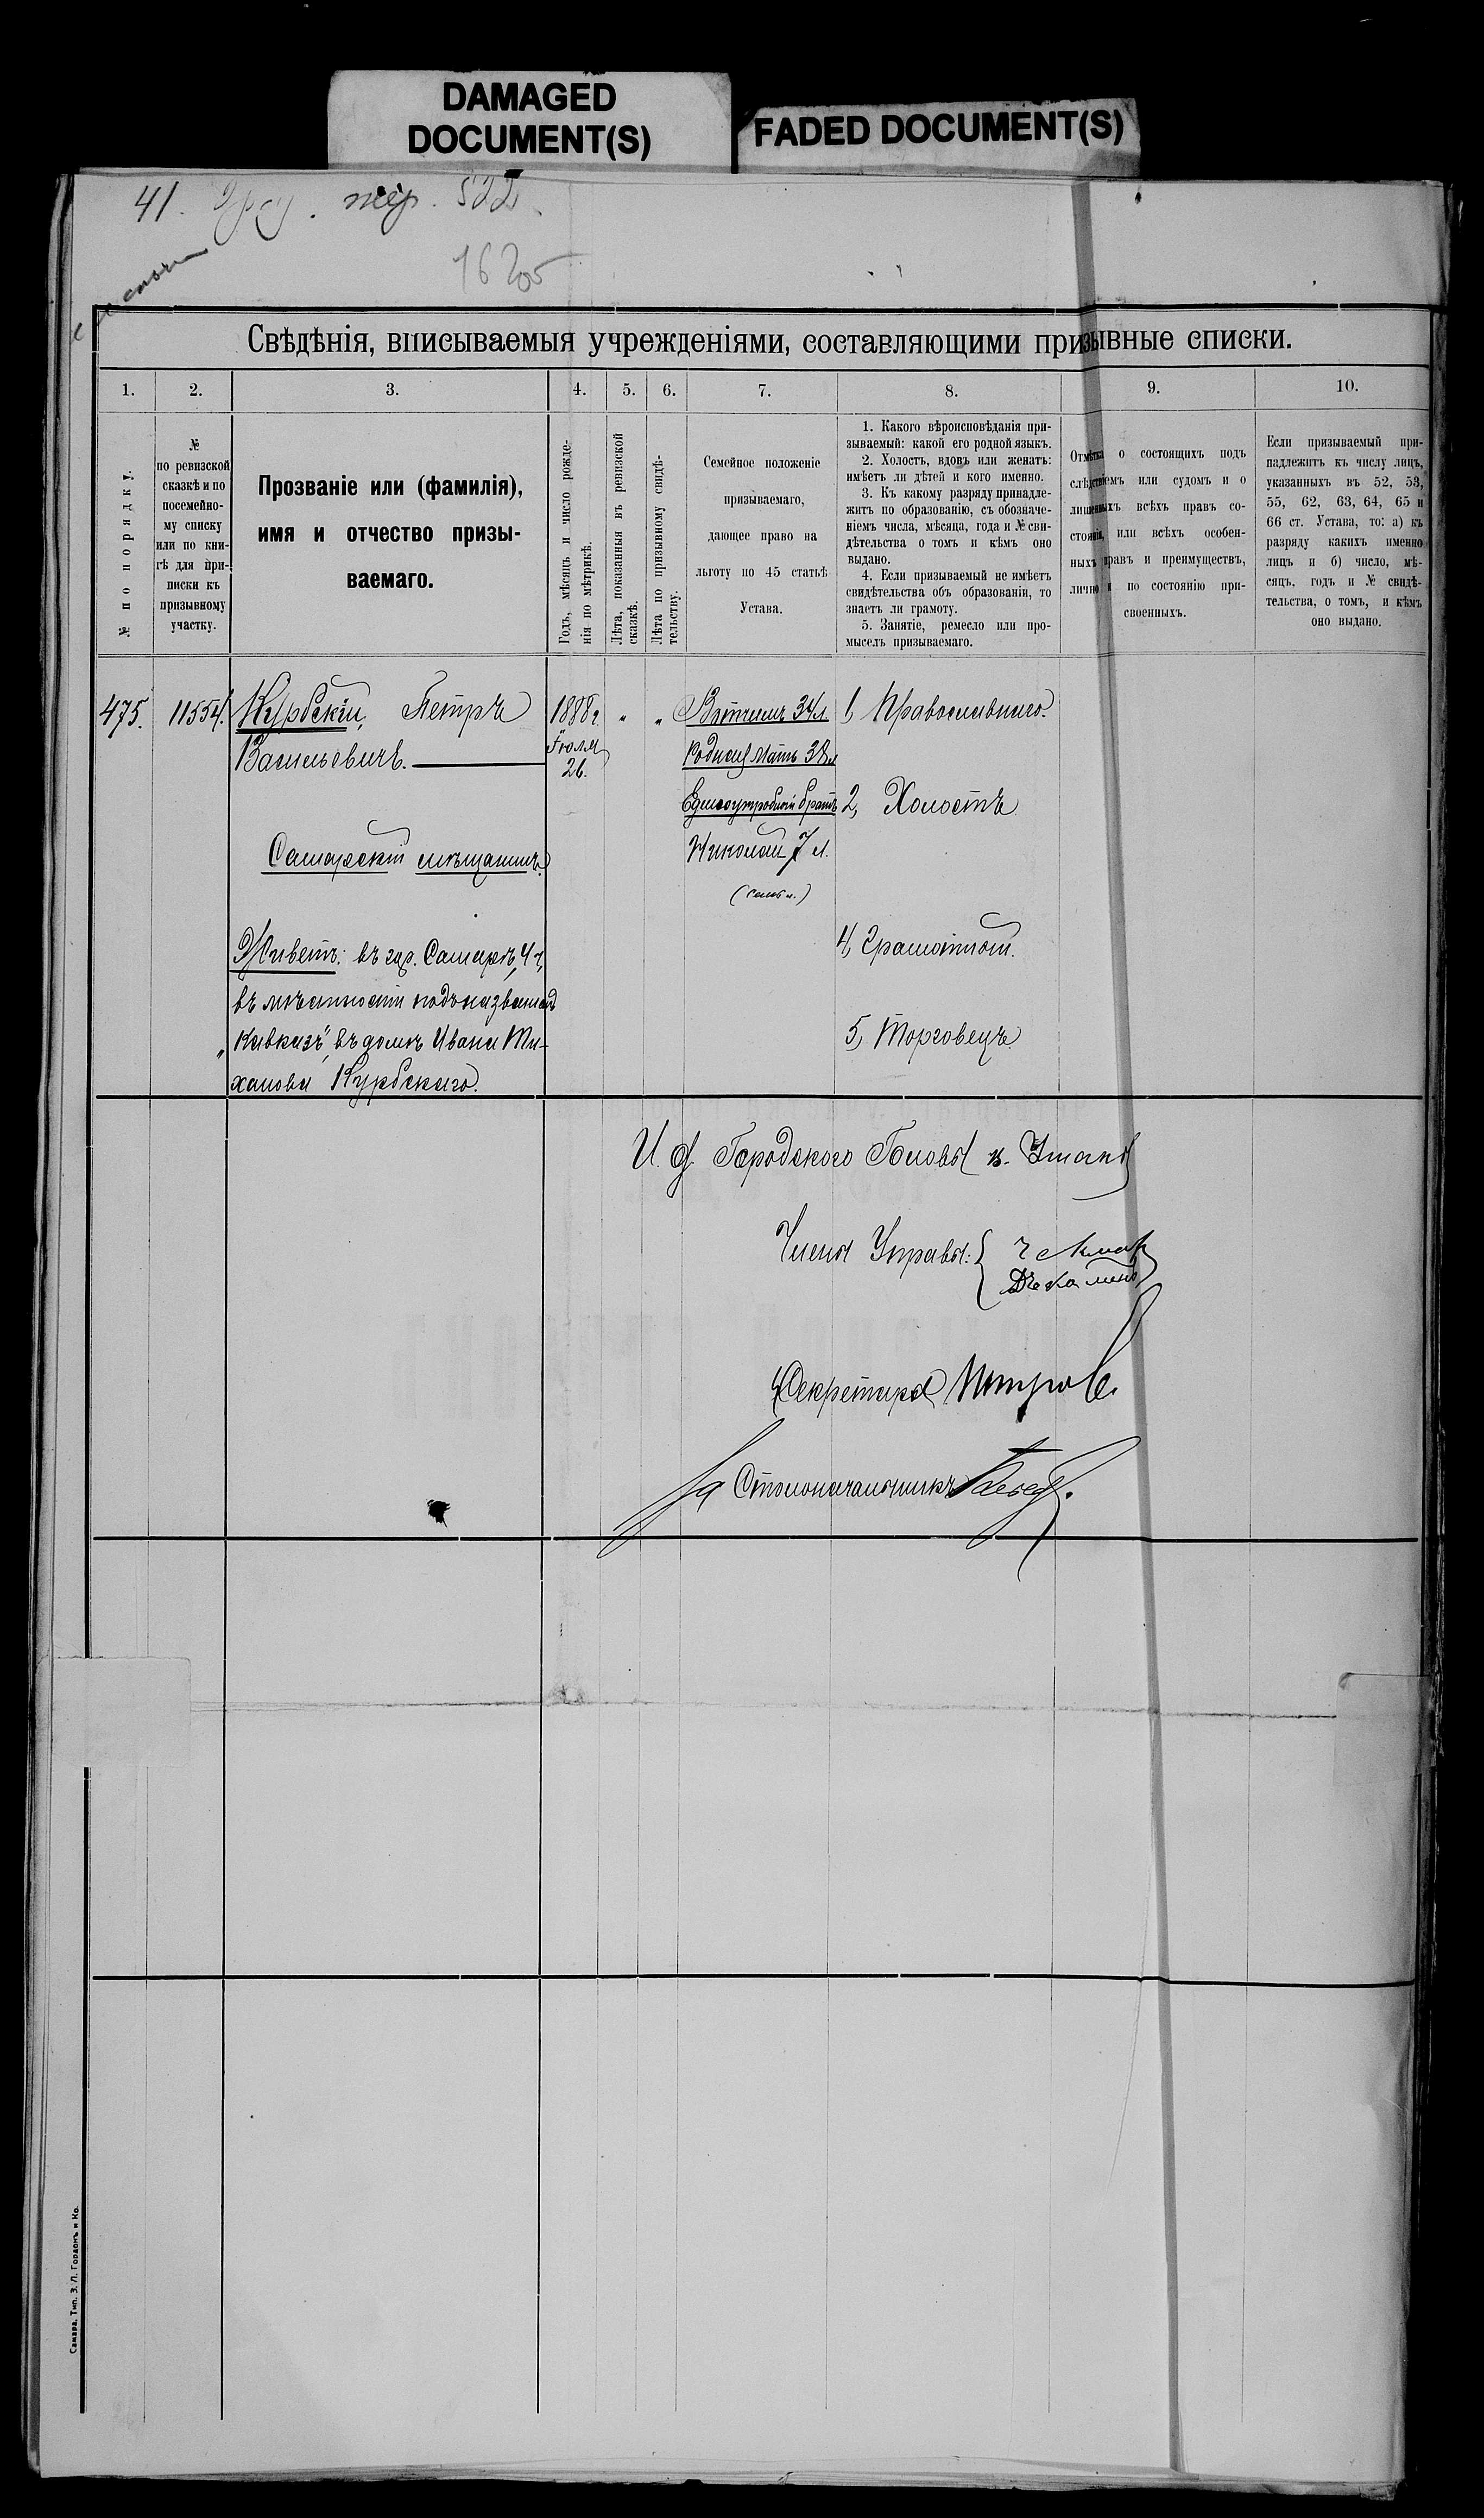 DAMAGED
DOCUMENT(S)
FADED DOCUMENT(S)
41.
Свѣдѣнія, вписываемыя учрежденіями, составляющими призывные списки.
1. 2. 3. 4. 5. 6. 7. 8. 9. 10.
№ по порядку.
№
по ревизской
сказкѣ и по
посемейно-
му списку
или по кни-
гѣ для при-
писки къ
призывному
участку.
Прозваніе или (фамилія),
имя и отчество призы-
ваемаго.
Годъ, мѣсяцъ и число рожде-
нія по мѣтрикѣ.
Лѣта, показанныя въ ревизской
сказкѣ.
Лѣта по призывному свидѣ-
тельству.
Семейное положеніе
призываемаго,
дающее право на
льготу по 45 статьѣ
Устава.
1. Какого вѣроисповѣданія при-
зываемый: какой его родной языкъ.
2. Холостъ, вдовъ или женатъ:
имѣетъ ли дѣтей и кого именно.
3. Къ какому разряду принадле-
житъ по образованію, съ обозначе-
ніемъ числа, мѣсяца, года и № сви-
дѣтельства о томъ и кѣмъ оно
выдано.
4. Если призываемый не имѣетъ
свидѣтельства объ образованіи, то
знаетъ ли грамоту.
5. Занятіе, ремесло или про-
мыселъ призываемаго.
Отмѣтка о состоящихъ подъ
слѣдствіемъ или судомъ и о
лишенныхъ всѣхъ правъ со-
стоянія, или всѣхъ особен-
ныхъ правъ и преимуществъ,
лично и по состоянію при-
своенныхъ.
Если призываемый при-
надлежитъ къ числу лицъ,
указанныхъ въ 52, 53,
55, 62, 63, 64, 65 и
66 ст. Устава, то: а) къ
разряду какихъ именно
лицъ и б) число, мѣ-
сяцъ, годъ и № свидѣ-
тельства, о томъ, и кѣмъ
оно выдано.
475.
11554.
Курбскій, Петръ
Васильевичъ.
Самарскій мѣщанинъ.
Живетъ: въ гор. Самарѣ, 4 ч,
въ мѣстности подъ названіемъ
„Кавказъ", въ домѣ Ивана Ти-
ханова Курбскаго.
1888 г.
Іюля
26.
" "
Вотчимъ 34 л.
Родная мать 38 л
Единоутробный братъ
Николай 7 л.
1, Православнаго.
2, Холостъ
4, Грамотный.
5, Торговецъ.
И. д. Городского Головы
Члены Управы:
Секретарь Петровъ
За Столоначальника
Самара, Тип. З. Л. Гордонъ и Ко.